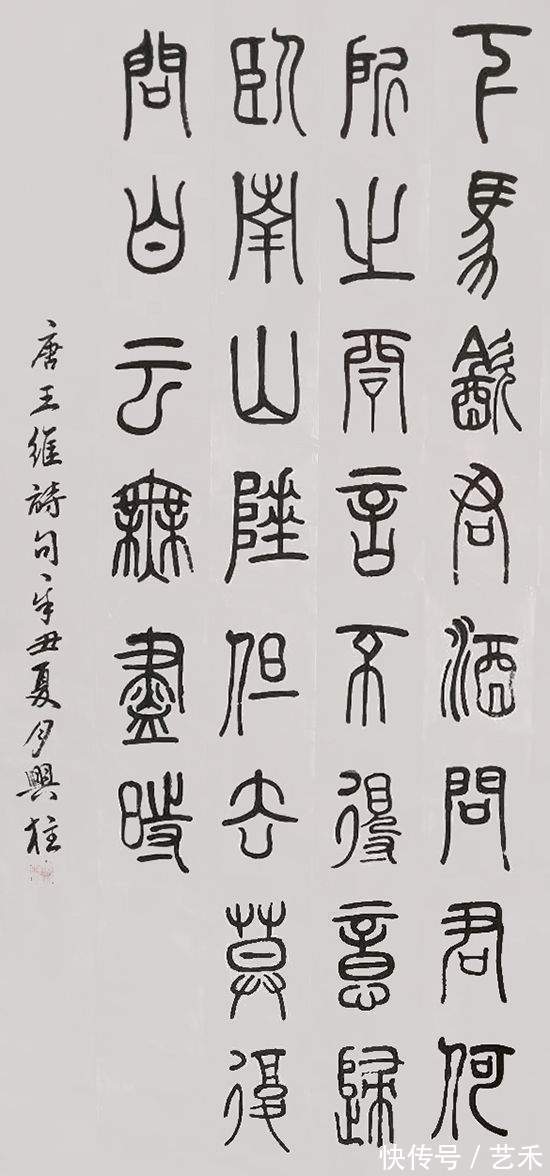 下馬飲君酒問君何
所之君言不得意歸
臥南山陲但去莫復
問白云無盡時
唐王維詩句辛丑夏月興柱
快传号 / 艺禾